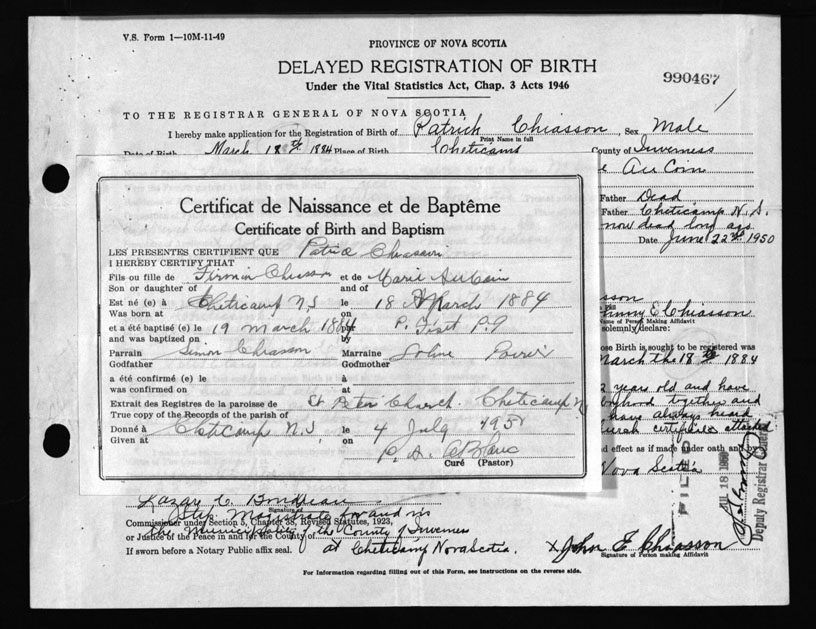 V.S. Form 1—10M-11-49
PROVINCE OF NOVA SCOTIA
DELAYED REGISTRATION OF BIRTH
Under the Vital Statistics Act, Chap. 3 Acts 1946
990467
TO THE REGISTRAR GENERAL OF NOVA SCOTIA
I hereby make application for the Registration of Birth of Patrick Chiasson, Sex Male
Print Name in full
Date of Birth March 18th 1884 Place of Birth Cheticamp County of Inverness
Au Coin
Father Dead
Father Cheticamp N.S.
now dead long ago
Date June 22nd 1950
Certificat de Naissance et de Baptême
Certificate of Birth and Baptism
LES PRESENTES CERTIFIENT QUE Patrick Chiasson
I HEREBY CERTIFY THAT
Fils ou fille de Firmin Chiasson et de Marie AuCoin
Son or daughter of and of
Est né (e) à Cheticamp N.S le 18 March 1884
Was born at on
et a été baptisé (e) le 19 March 1884 par P. Fiset P.P
and was baptized on by
Parrain Simon Chiasson Marraine Poirier
Godfather Godmother
a été confirmé (e) le à
was confirmed on at
Extrait des Registres de la paroisse de St Peter Church. Cheticamp N
True copy of the Records of the parish of
Donné à Cheticamp N.S le 4 July 1950
Given at on
P. A. LeBlanc
Curé (Pastor)
sson
E Chiasson
Name of Person Making Affidavit
solemnly declare:
ose Birth is sought to be registered was
March the 18th 1884
years old and have
together and
have always heard
church certificate attached
nd effect as if made under oath and by
Nova Scotia
FILED
JUL 18 1950
Deputy Registrar
Lazare C. Boudreau
Signature of
Stip. Magistrate for and in
Commissioner under Section 5, Chapter 38, Revised Statutes, 1923,
the Municipality of the County of Inverness
or Justice of the Peace in and for the County of
If sworn before a Notary Public affix seal.
at Cheticamp Nova Scotia.
x John E Chiasson
Signature of Person making Affidavit
For Information regarding filling out of this Form, see instructions on the reverse side.